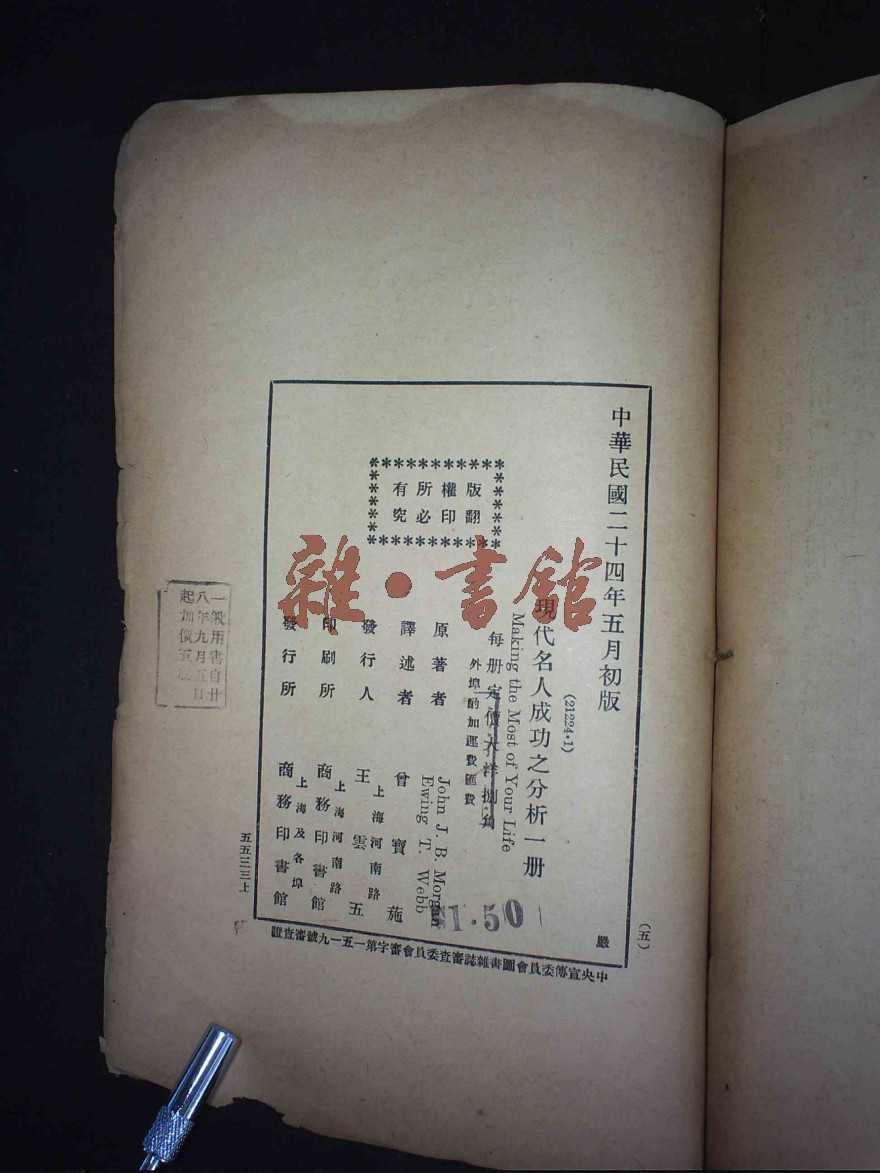 中華民國二十四年五月初版
(21224·1)
現代名人成功之分析一册
Making the Most of Your Life
每册定價大洋捌角
外埠酌加運費匯費
$1.50
版權所有
翻印必究
原著者 John J. B. Morgan
Ewing T. Webb
譯述者 曾寶施
發行人 王雲五
上海河南路
印刷所 商務印書館
上海河南路
發行所 商務印書館
上海及各埠
(五)
嚴
五五三三上
中央宣傳委員會圖書雜誌審查委員會審字第一五一九號審查證
一般用書自廿
八年九月五日
起加價五成
雜·書館